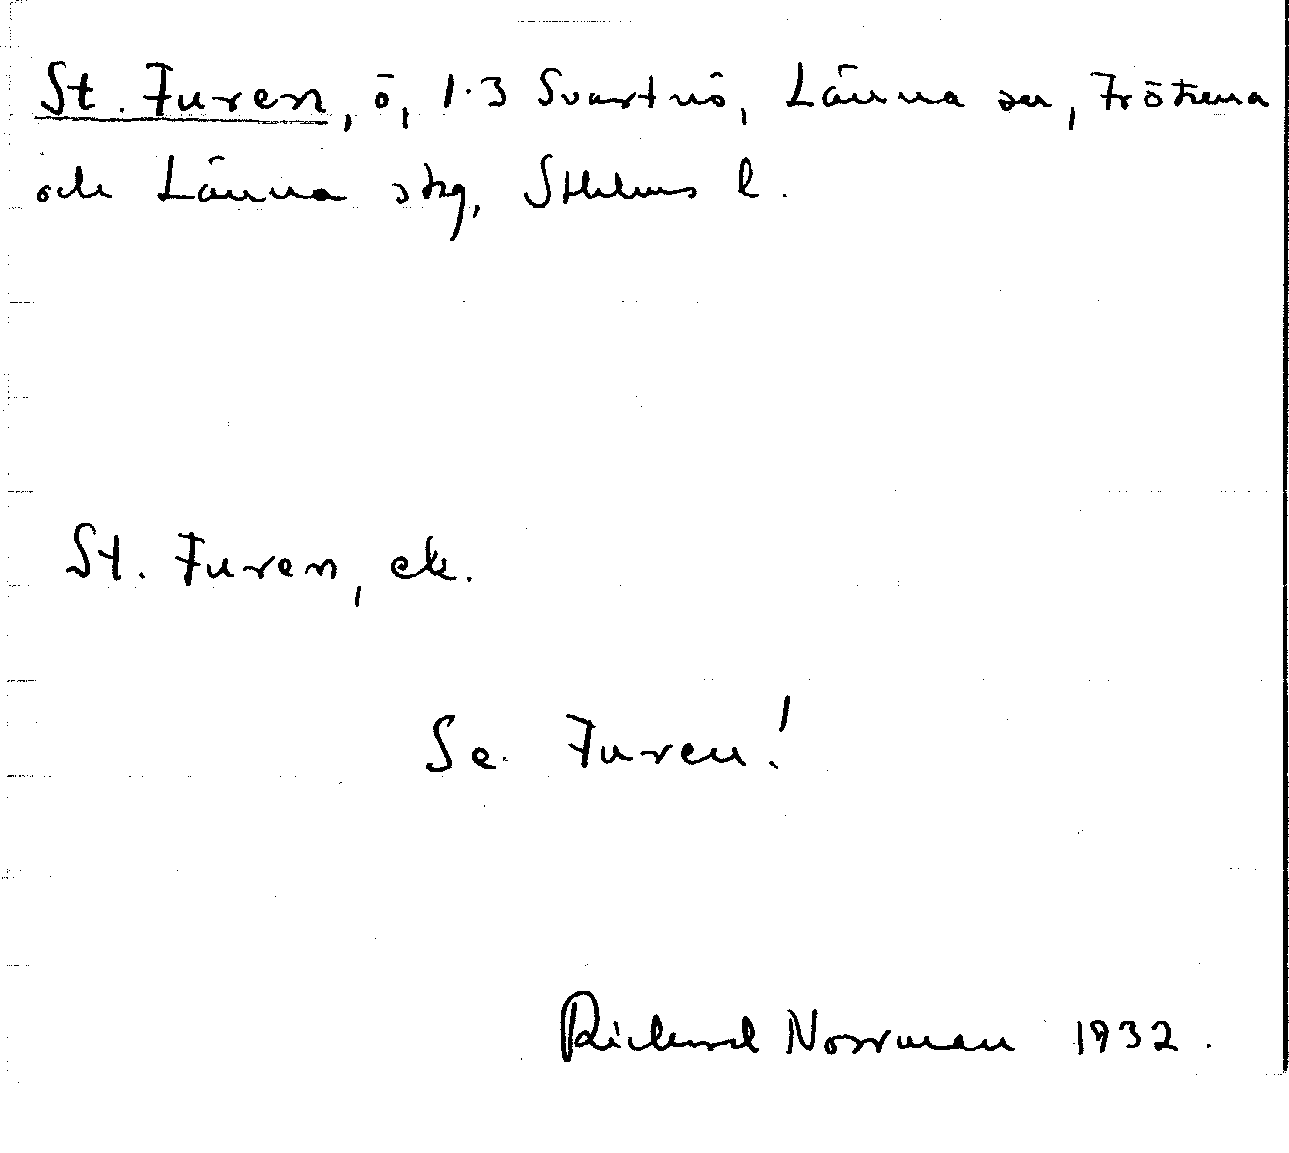 St. Furen, ö, 1·3 Svartnö, Länna sn, Frötuna
och Länna skg, Sthlms l.
St. Furen, ek.
Se Furen!
Richard Norrman 1932.